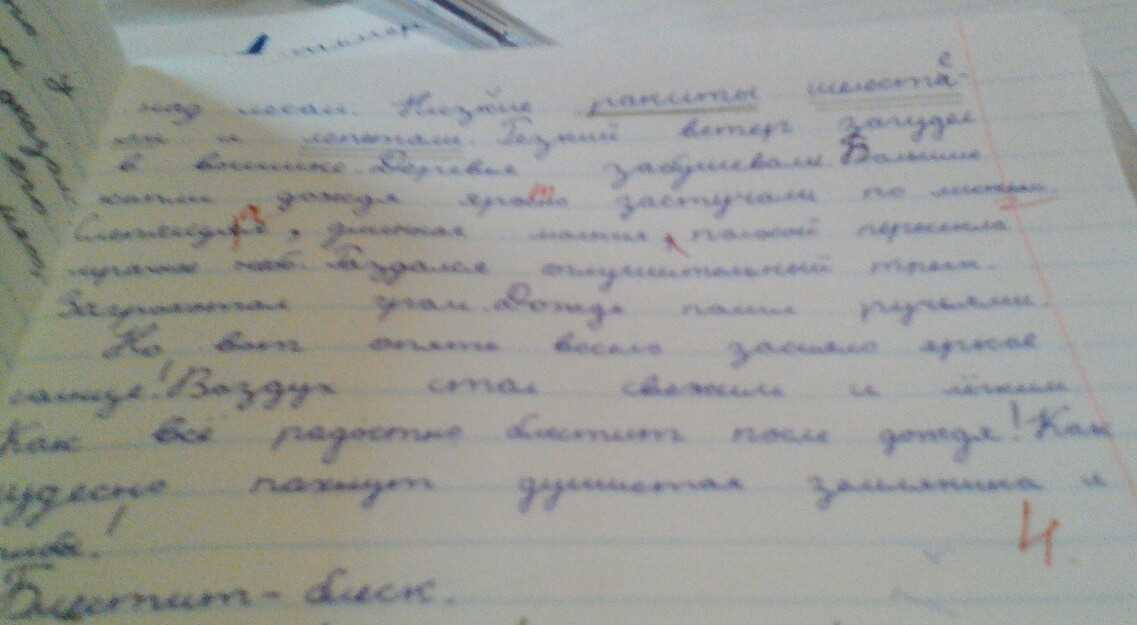 над лесам. Низкие ракиты шелеста-
ли и лепетали. Резкий ветер загудел
в вышине. Деревья забушевали. Большие
капли дождя яростно застучали по листьям.
длинная молния полосой пересекла
неб. Раздался оглушительный треск.
Загрохотал гром. Дождь полил ручьями.
Но вот опять весело засияло яркое
солнце! Воздух стал свежим и лёгким
Как всё радостно блестит после дождя! Как
чудесно пахнут душистая земляника и
грибы!
4.
Блестит - блеск.